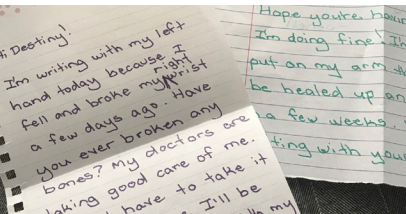 Hi Destiny!
I'm writing with my left
hand today because I
fell and broke my right wrist
a few days ago. Have
you ever broken any
bones? My doctors are
taking good care of me.
have to take it
I'll be
my
Hope you're
I'm doing fine!
put on my arm
be healed up an
a few weeks.
with your